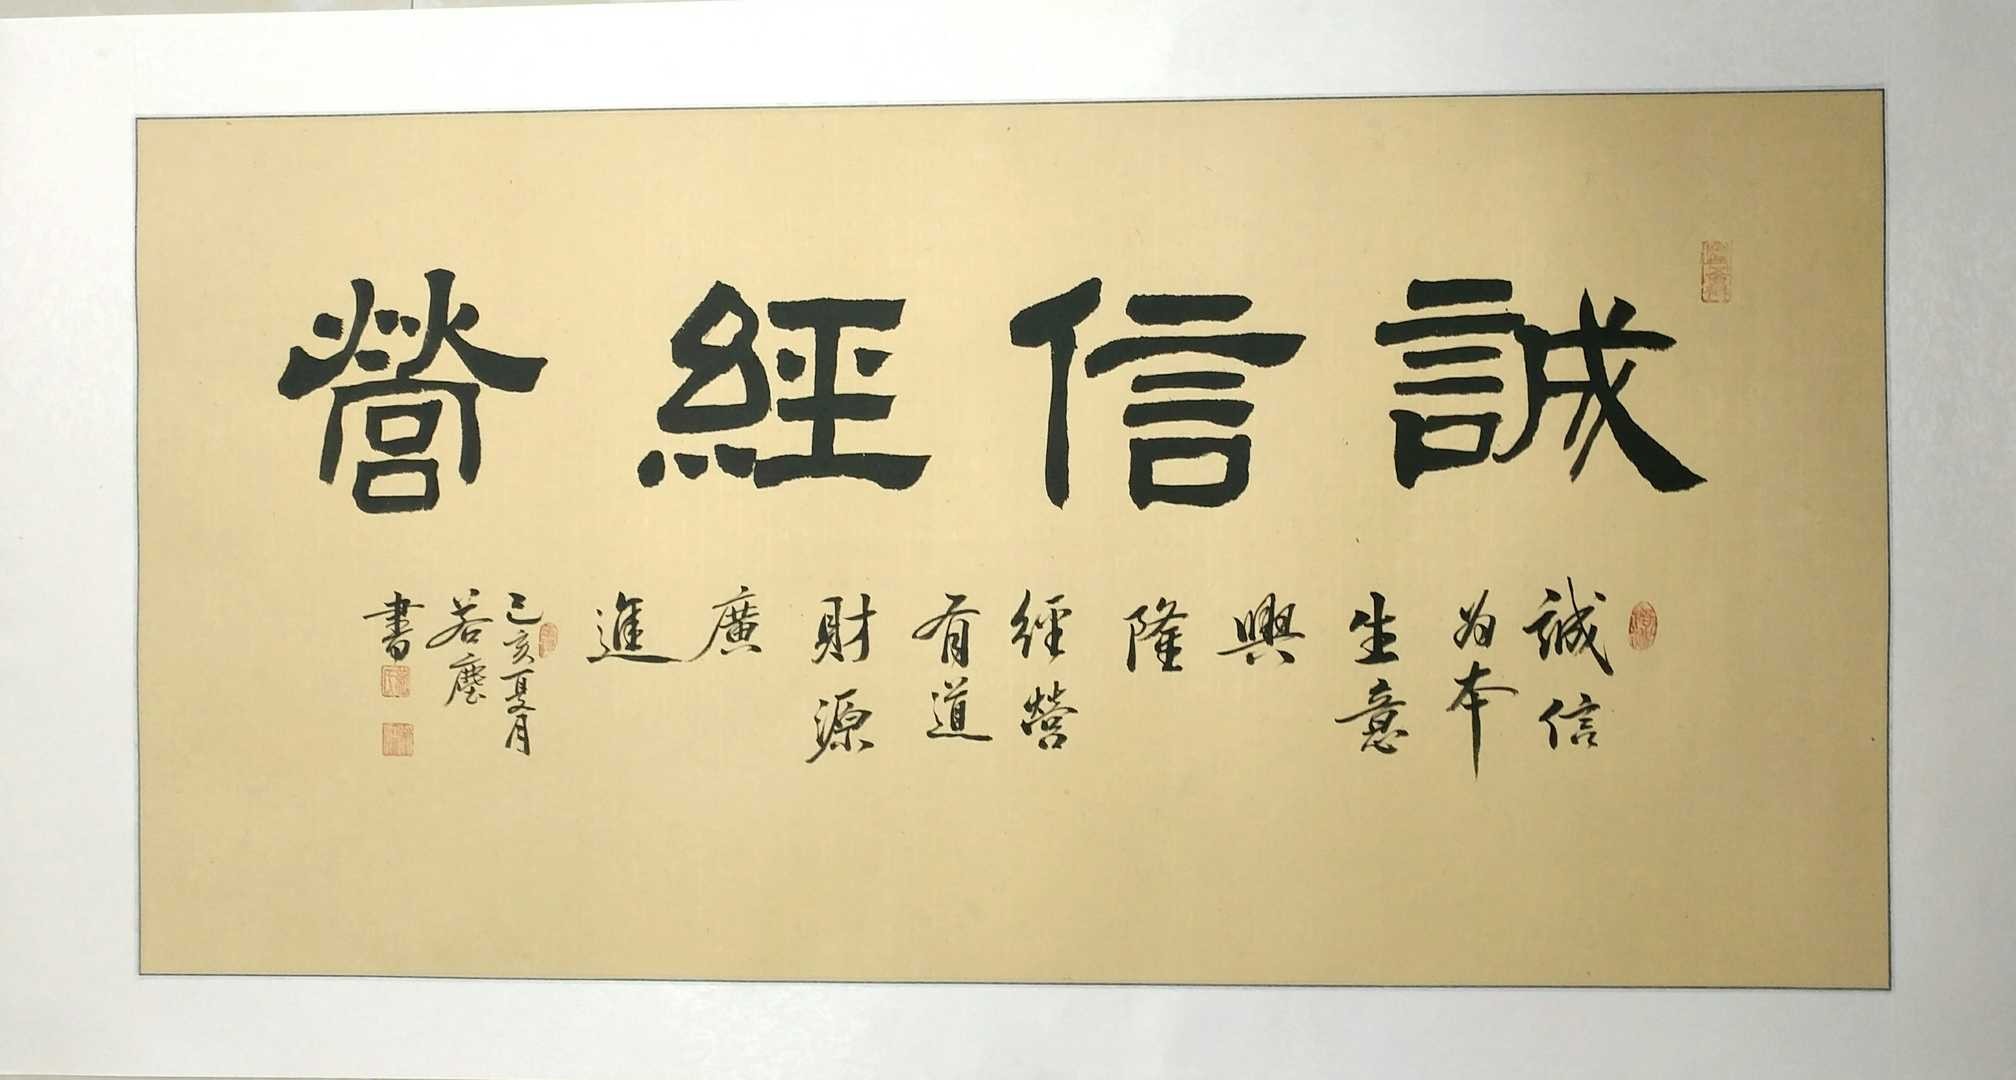 誠信經營
誠信
为本
生意
興
隆
經營
有道
財源
廣
進
己亥夏月
若塵
書